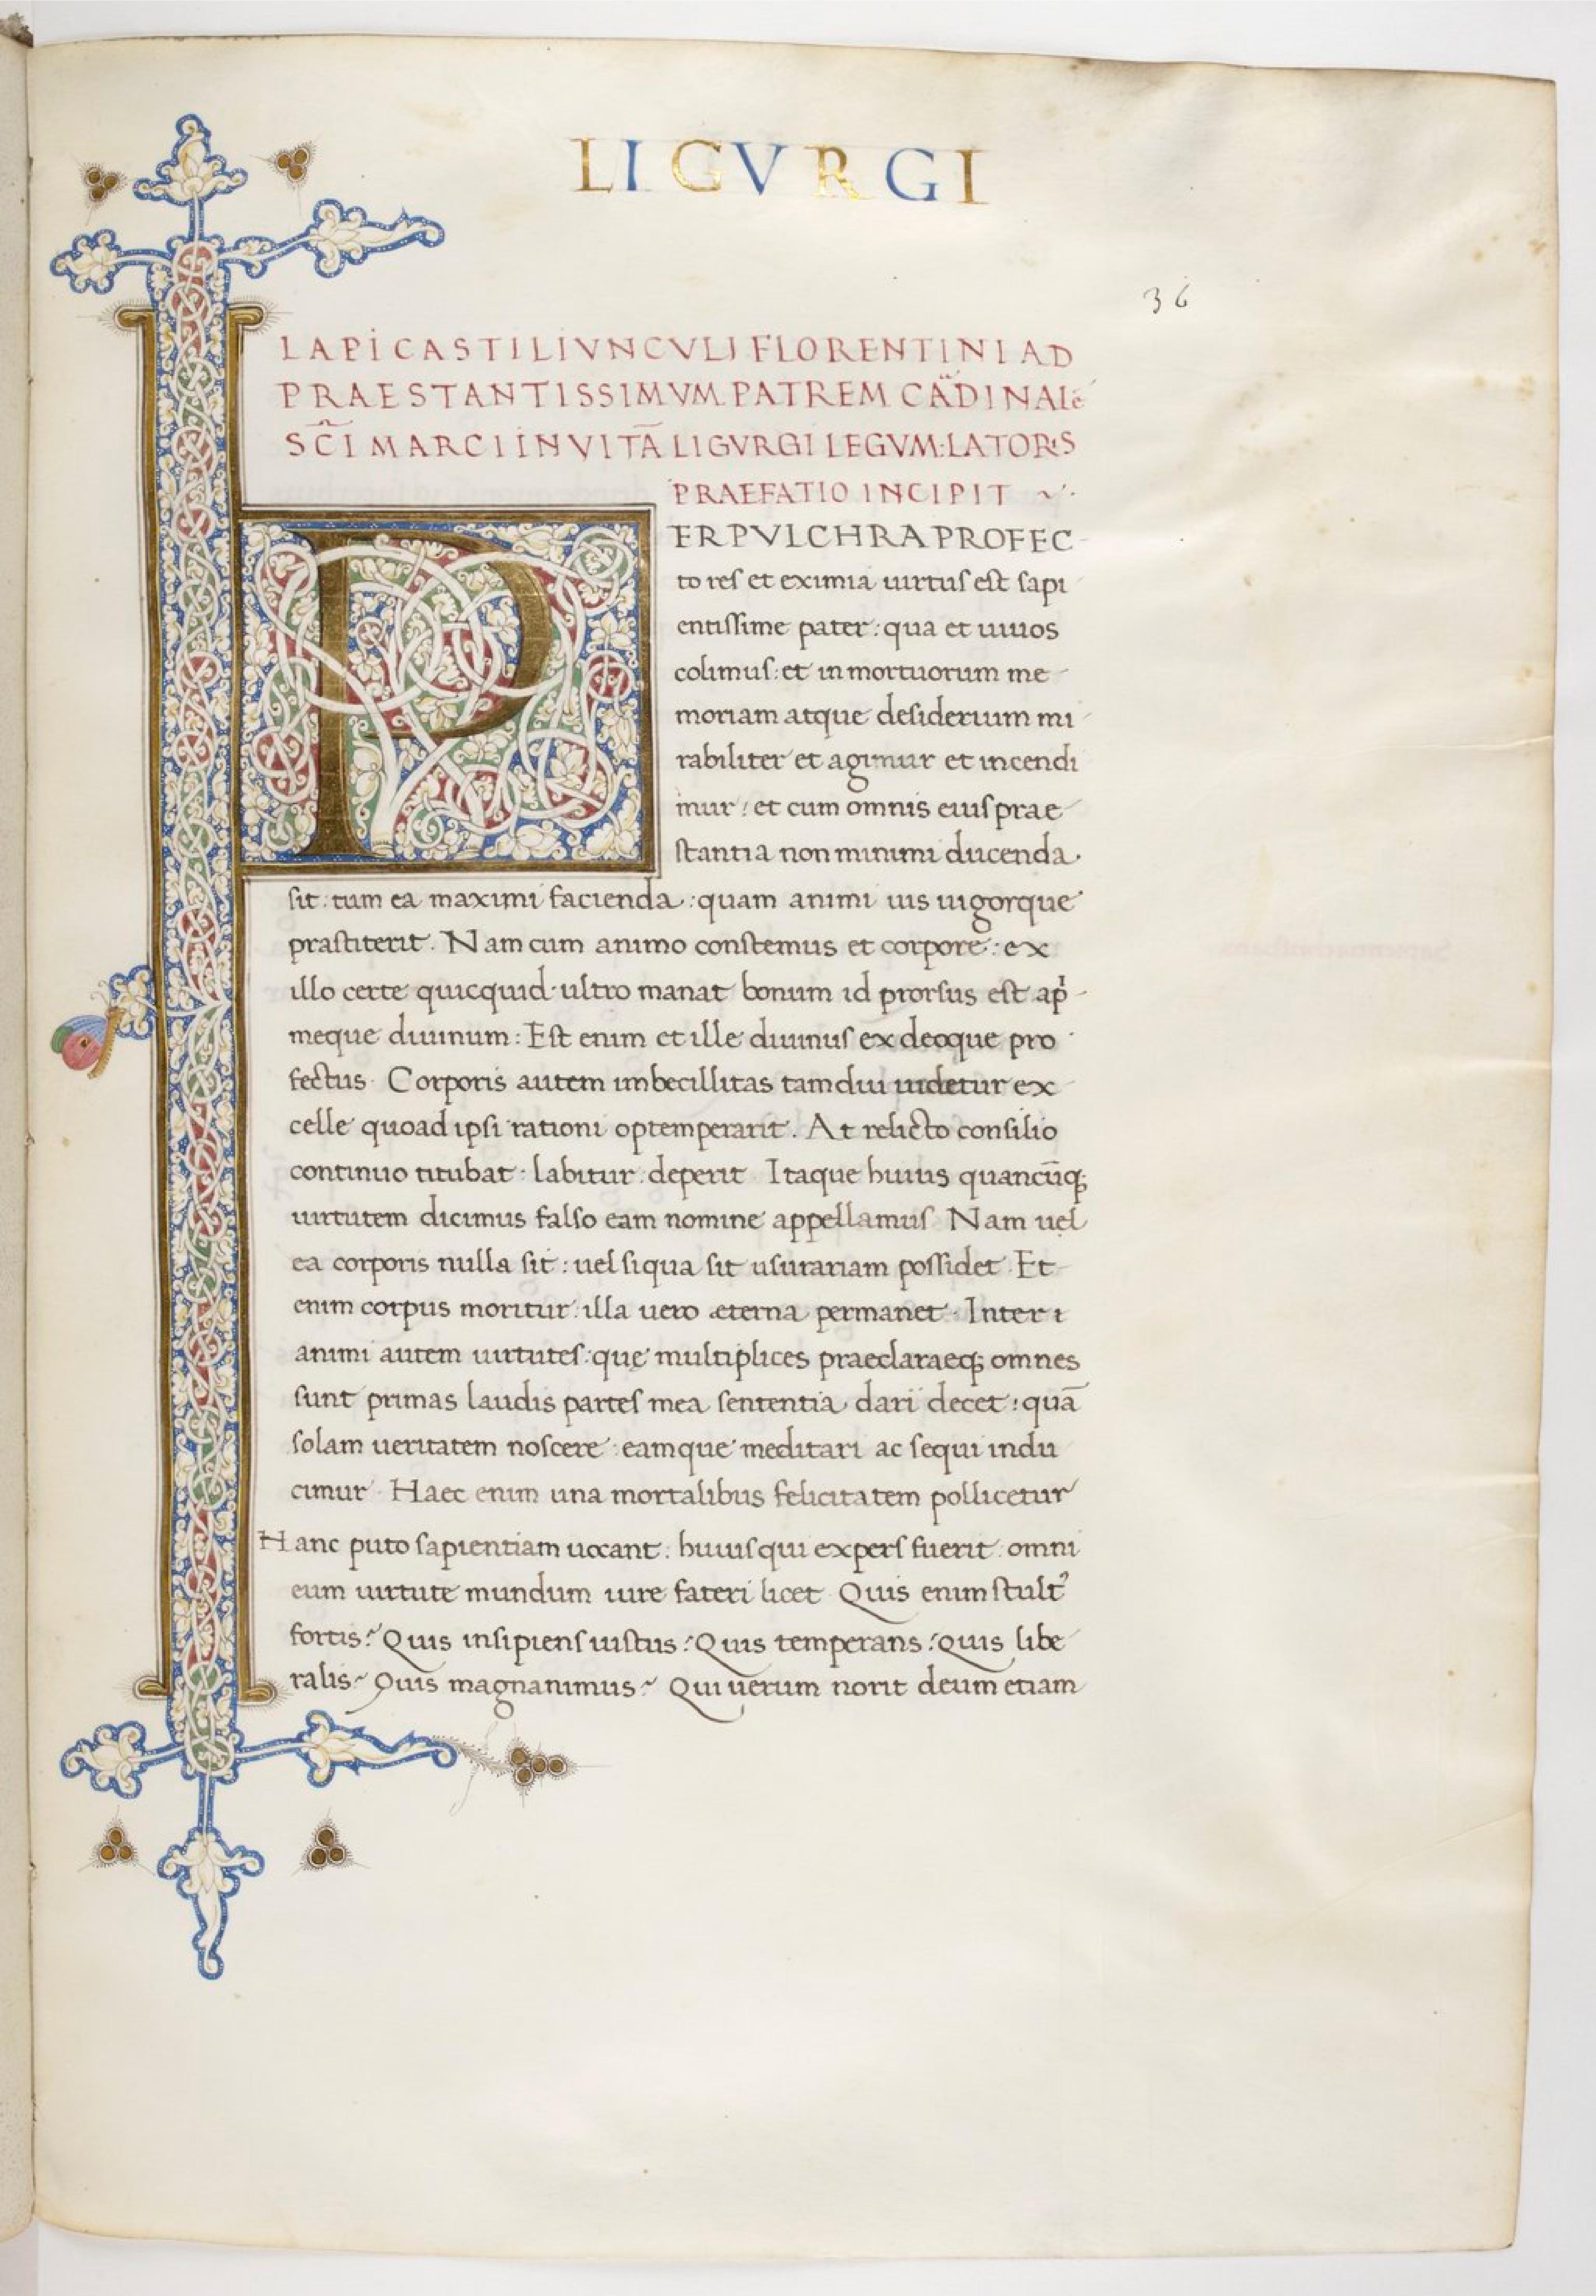 LIGVRGI
36
LAPI CASTILIVNCVLI FLORENTINI AD
PRAESTANTISSIMVM PATREM CADINALē
SCI MARCI IN VITĀ LIGVRGI LEGVM:LATORIS
PRAEFATIO INCIPIT ~·
PERPVLCHRA PROFEC-
to res et eximia uirtuſ eſt ſapi
entiſſime pater: qua et uiuos
colimuſ: et in mortuorum me-
moriam atque deſiderium mi-
rabiliter et agimur et incendi
mur: et cum omnis eiuſ prae-
ſtantia non minimi ducenda·
ſit: tum ea maximi facienda: quam animi uis uigorque
praſtiterit. Nam cum animo conſtemus et corpore: ex
illo certe quicquid ultro manat bonum id prorſus eſt ap̄-
meque diuinum: Eſt enim et ille diuinuſ ex deoque pro·
fectus. Corporis autem imbecillitas tamdiu uidetur ex-
celle quoad ipſi rationi optemperarit. At relicto conſilio
continuo titubat: labitur: deperit. Itaque huius quancūq;
uirtutem dicimus falſo eam nomine appellamuſ. Nam uel
ea corporis nulla ſit: uel ſiqua ſit uſurariam poſſidet. Et-
enim corpus moritur: illa uero æterna permanet. Inter i
animi autem uirtuteſ: quę multiplices praeclaraeq; omnes
ſunt primas laudis parteſ mea ſententia dari decet: quā
ſolam ueritatem noſcere: eamque meditari ac ſequi indu
cimur. Haec enim una mortalibus felicitatem pollicetur
Hanc puto ſapientiam uocant: huiuſ qui experſ fuerit: omni
eum uirtute mundum iure fateri licet. Quis enim ſtult⁹
fortis? Quis inſipienſ iuſtus? Quis temperans? Quis libe
ralis? Quis magnanimus? Qui uerum norit deum etiam